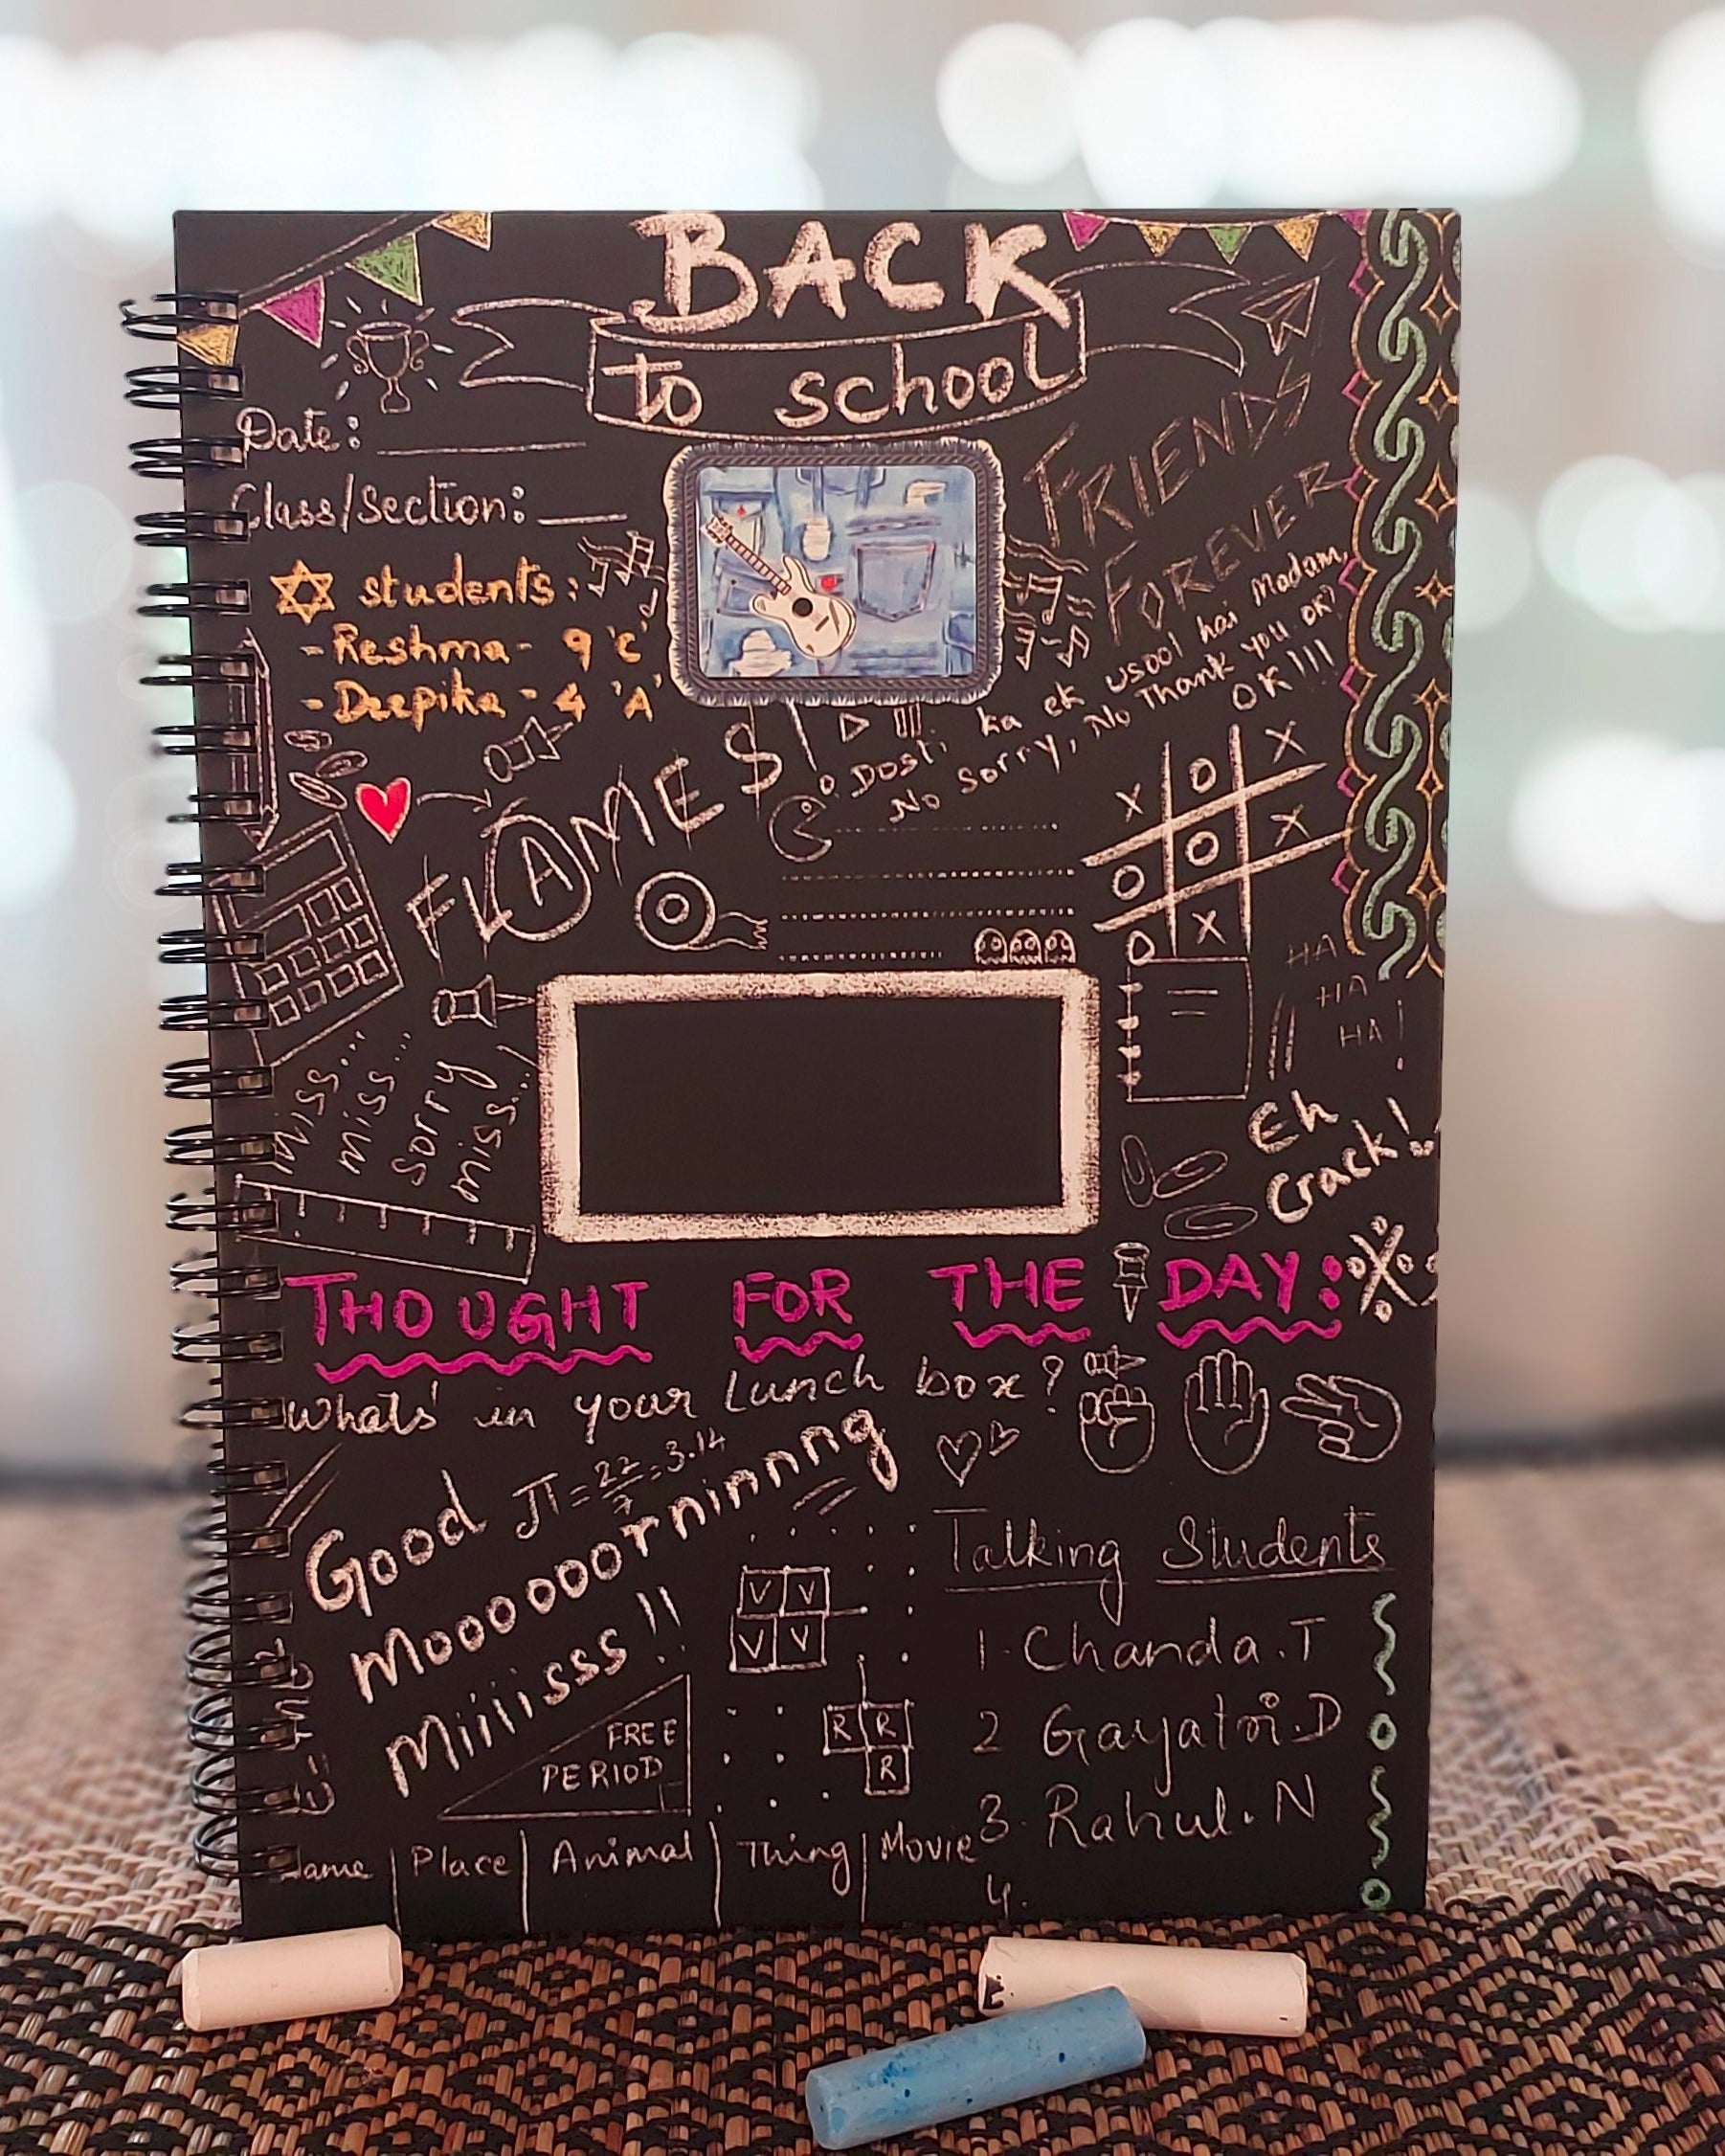 BACK
to school
Date:
Class/Section:
students:
- Reshma - 9 'C'
- Deepika - 4 'A'
FRIENDS
FOREVER
Dosti ka ek usool hai Madam,
No Sorry, No Thank you OK?
OK!!!
FLAMES
X O X
O O X
O X
HA
HA
HA!
miss....
miss...
sorry
miss...
Eh
Crack!
THOUGHT FOR THE DAY:
Whats' in your Lunch box?
π = 22/7 = 3.14
Good
Moooooorninnnng
Miiiisss!!
FREE
PERIOD
V V
V V
R R
R
Talking Students
1. Chanda.T
2 Gayatri.D
3. Rahul.N
4.
Name | Place | Animal | Thing | Movie